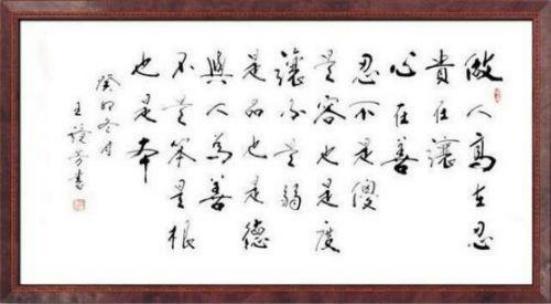 做人高在忍
贵在讓
心在善
忍不是傻
是容也是度
讓不是弱
是品也是德
與人為善
不是笨是根
也是本
癸卯冬月
王

芳書